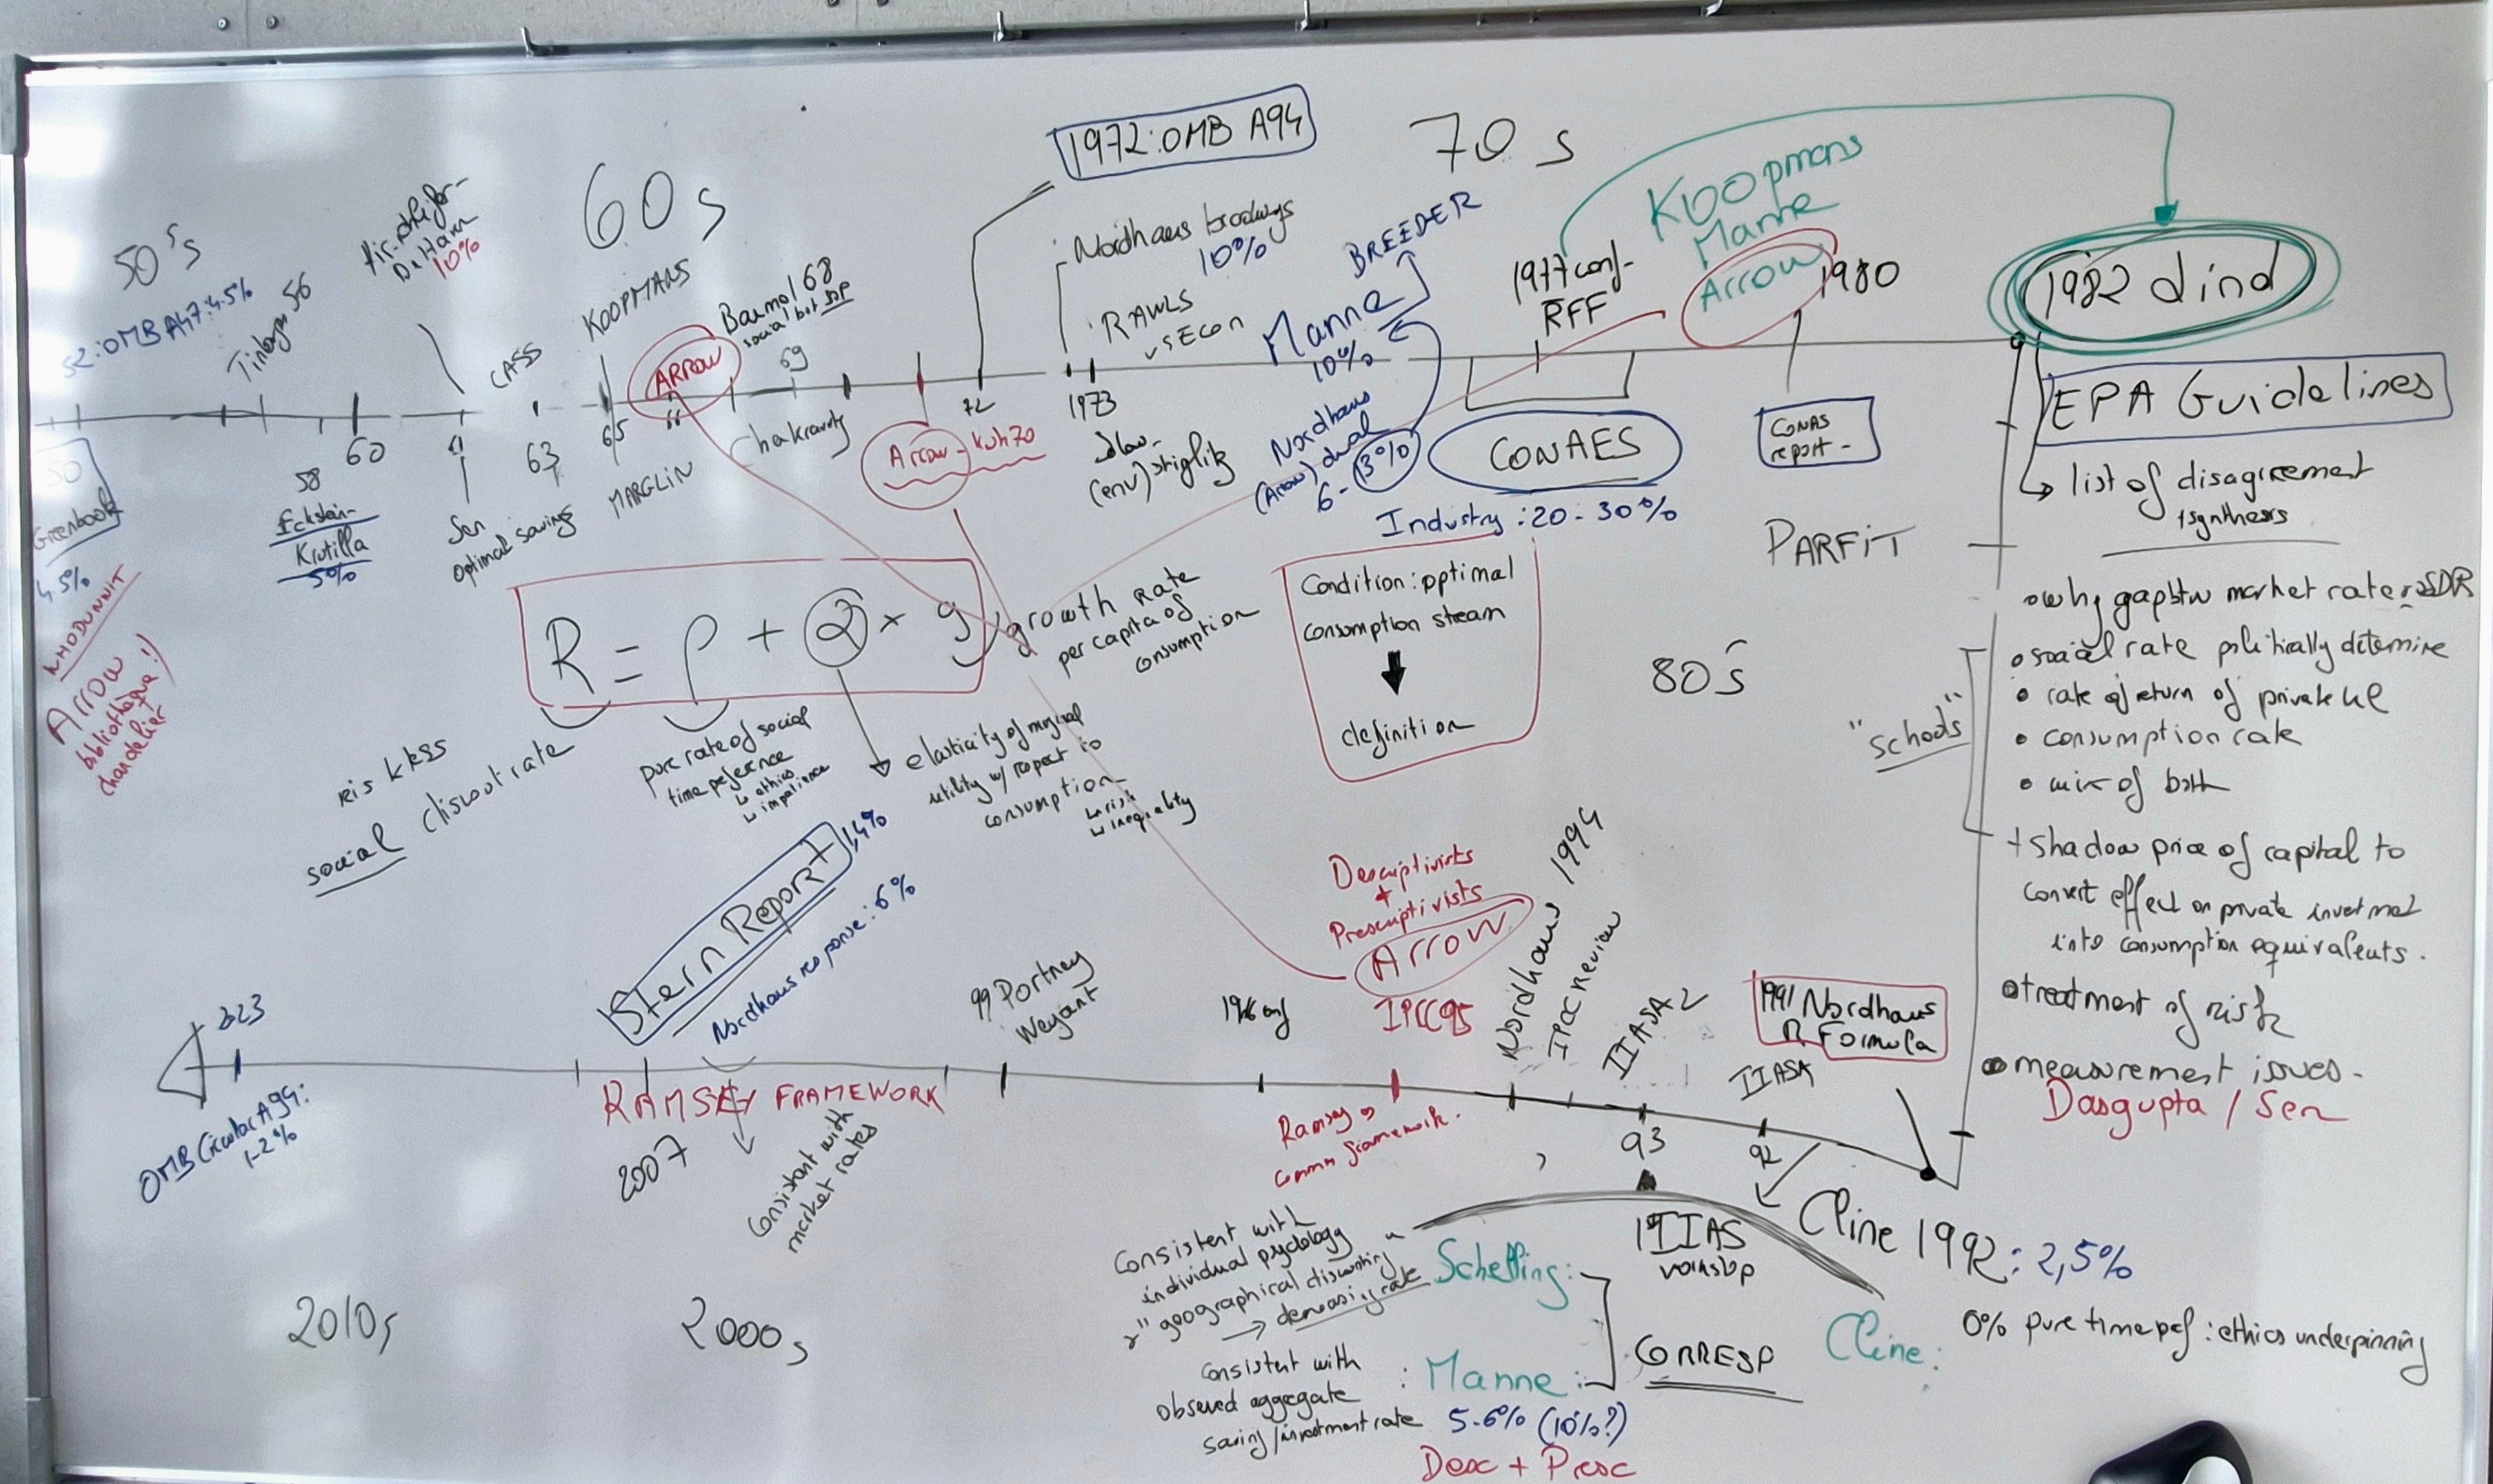 50's
52: OMB A47: 4.5%
Tinbergen 56
Hirshleifer-
DeHaven
10%
60s
CASS
KOOPMANS
ARROW
Baumol 68
social but
69
1972: OMB A94
70s
Nordhaus
10%
RAWLS
vs Econ
BREEDER
Manne
10%
1977 conf-
RFF
Koopmans
Manne
Arrow
1980
1982 dind
50
Greenbook
4.5%
WHODUNNIT
ARROW
bibliothèque
chandelier
!)
58
Eckstein-
Krutilla
5%
60
61
Sen
optimal saving
63
65
MARGLIN
66
Chakravarty
Arrow-Kuh70
72
1973
Solow-
(env) stiglitz
Nordhaus
(Arrow) dual
6-13%
CONAES
Industry: 20-30%
CONAS
report-
EPA Guidelines
list of disagreement
+synthesis
PARFIT
R = ρ + α × g
growth rate
per capita of
consumption
Condition: optimal
consumption steam
definition
80's
riskless
social discout rate
pure rate of social
time peference
↳ ethics
↳ impatience
elasticity of marginal
utility w/ respect to
consumption-
↳ risk
↳ inequality
• why gap btw market rate SDR
• social rate politically determine
• rate of return of private
• consumption rate
• mix of both
"schools"
+ Shadow price of capital to
convert effect on private invetmet
into consumption equivalents.
• treatment of risk
• measurement issues-
Dasgupta / Sen
Stern Report
1,4%
Nordhaus response: 6%
99 Portney
Weyant
Descriptivists
+
Prescriptivists
ARROW
IPCC95
Nordhaus 1994
IPCC Review
IIASA 2
1991 Nordhaus
R Formula
IIASA
2023
OMB Circular A94:
1-2%
RAMSEY FRAMEWORK
2007
Consistant with
market rates
Ramsey
comm framework.
93
92
Cline 1992: 2,5%
0% pure time pef: ethics underpinning
Cline:
IIAS
workshop
Consistent with
individual psychology
"geographical discounting"
→ decreasing rate
Schelling:
CORRESP
consistent with
obseved aggregate
saving/investment rate
: Manne:
5-6% (10%?)
Desc + Presc
2010s
2000s